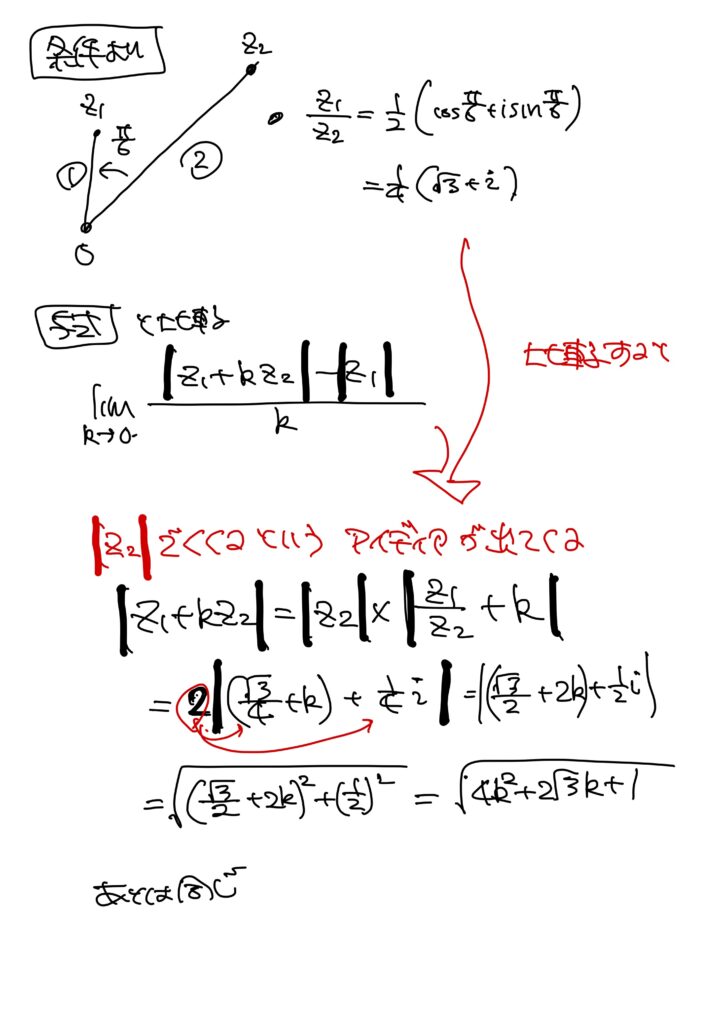 条件より
z₂
z₁
π/6
①
②
0
・ z₁/z₂ = 1/2 (cos π/6 + i sin π/6)
= 1/4 (√3 + i)
与式 と比較
lim k→0 (|z₁+kz₂| - |z₁|)/k
比較すると
|z₂| でくくるという アイディアが出てくる
|z₁+kz₂| = |z₂| × |z₁/z₂ + k|
= 2|(√3/4 + k) + 1/4 i| = |(√3/2 + 2k) + 1/2 i|
= √((√3/2 + 2k)² + (1/2)²) = √(4k² + 2√3k + 1)
あとは(3)じ